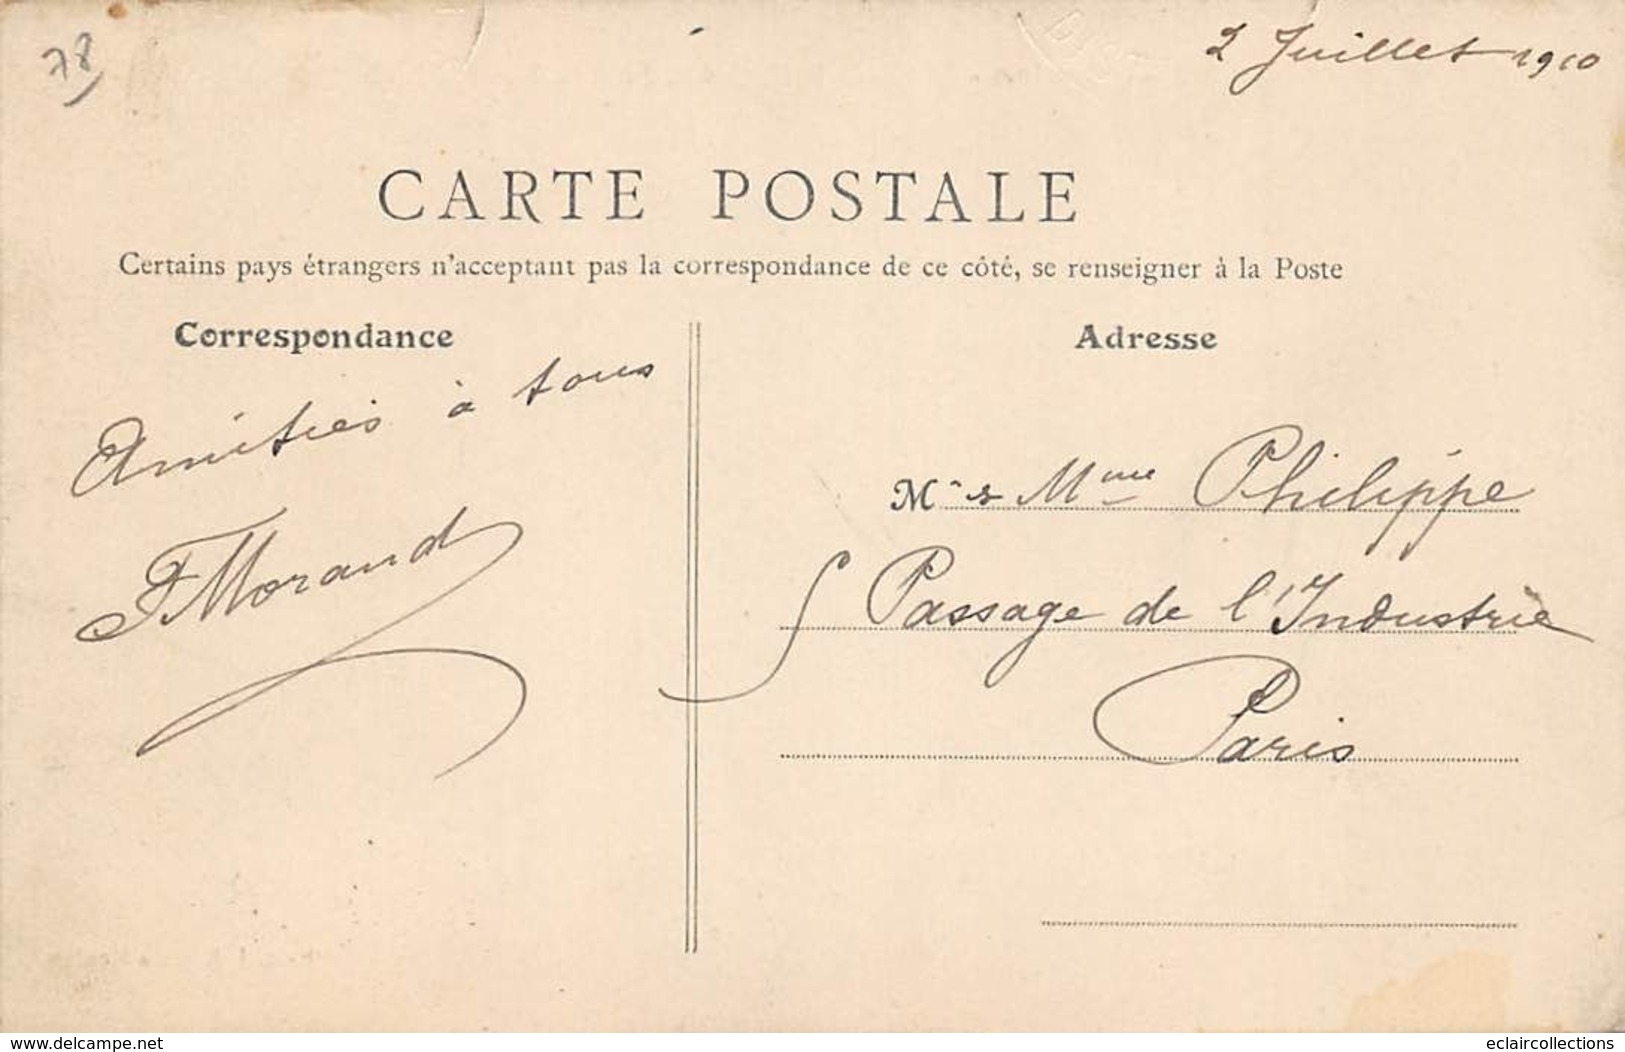 78
2 Juillet 1910
CARTE POSTALE
Certains pays étrangers n'acceptant pas la correspondance de ce côté, se renseigner à la Poste
Correspondance
Amitiés à tous
FMorand
Adresse
M. & Mme Philippe
5 Passage de l'Industrie
Paris
www.delcampe.net
eclaircollections